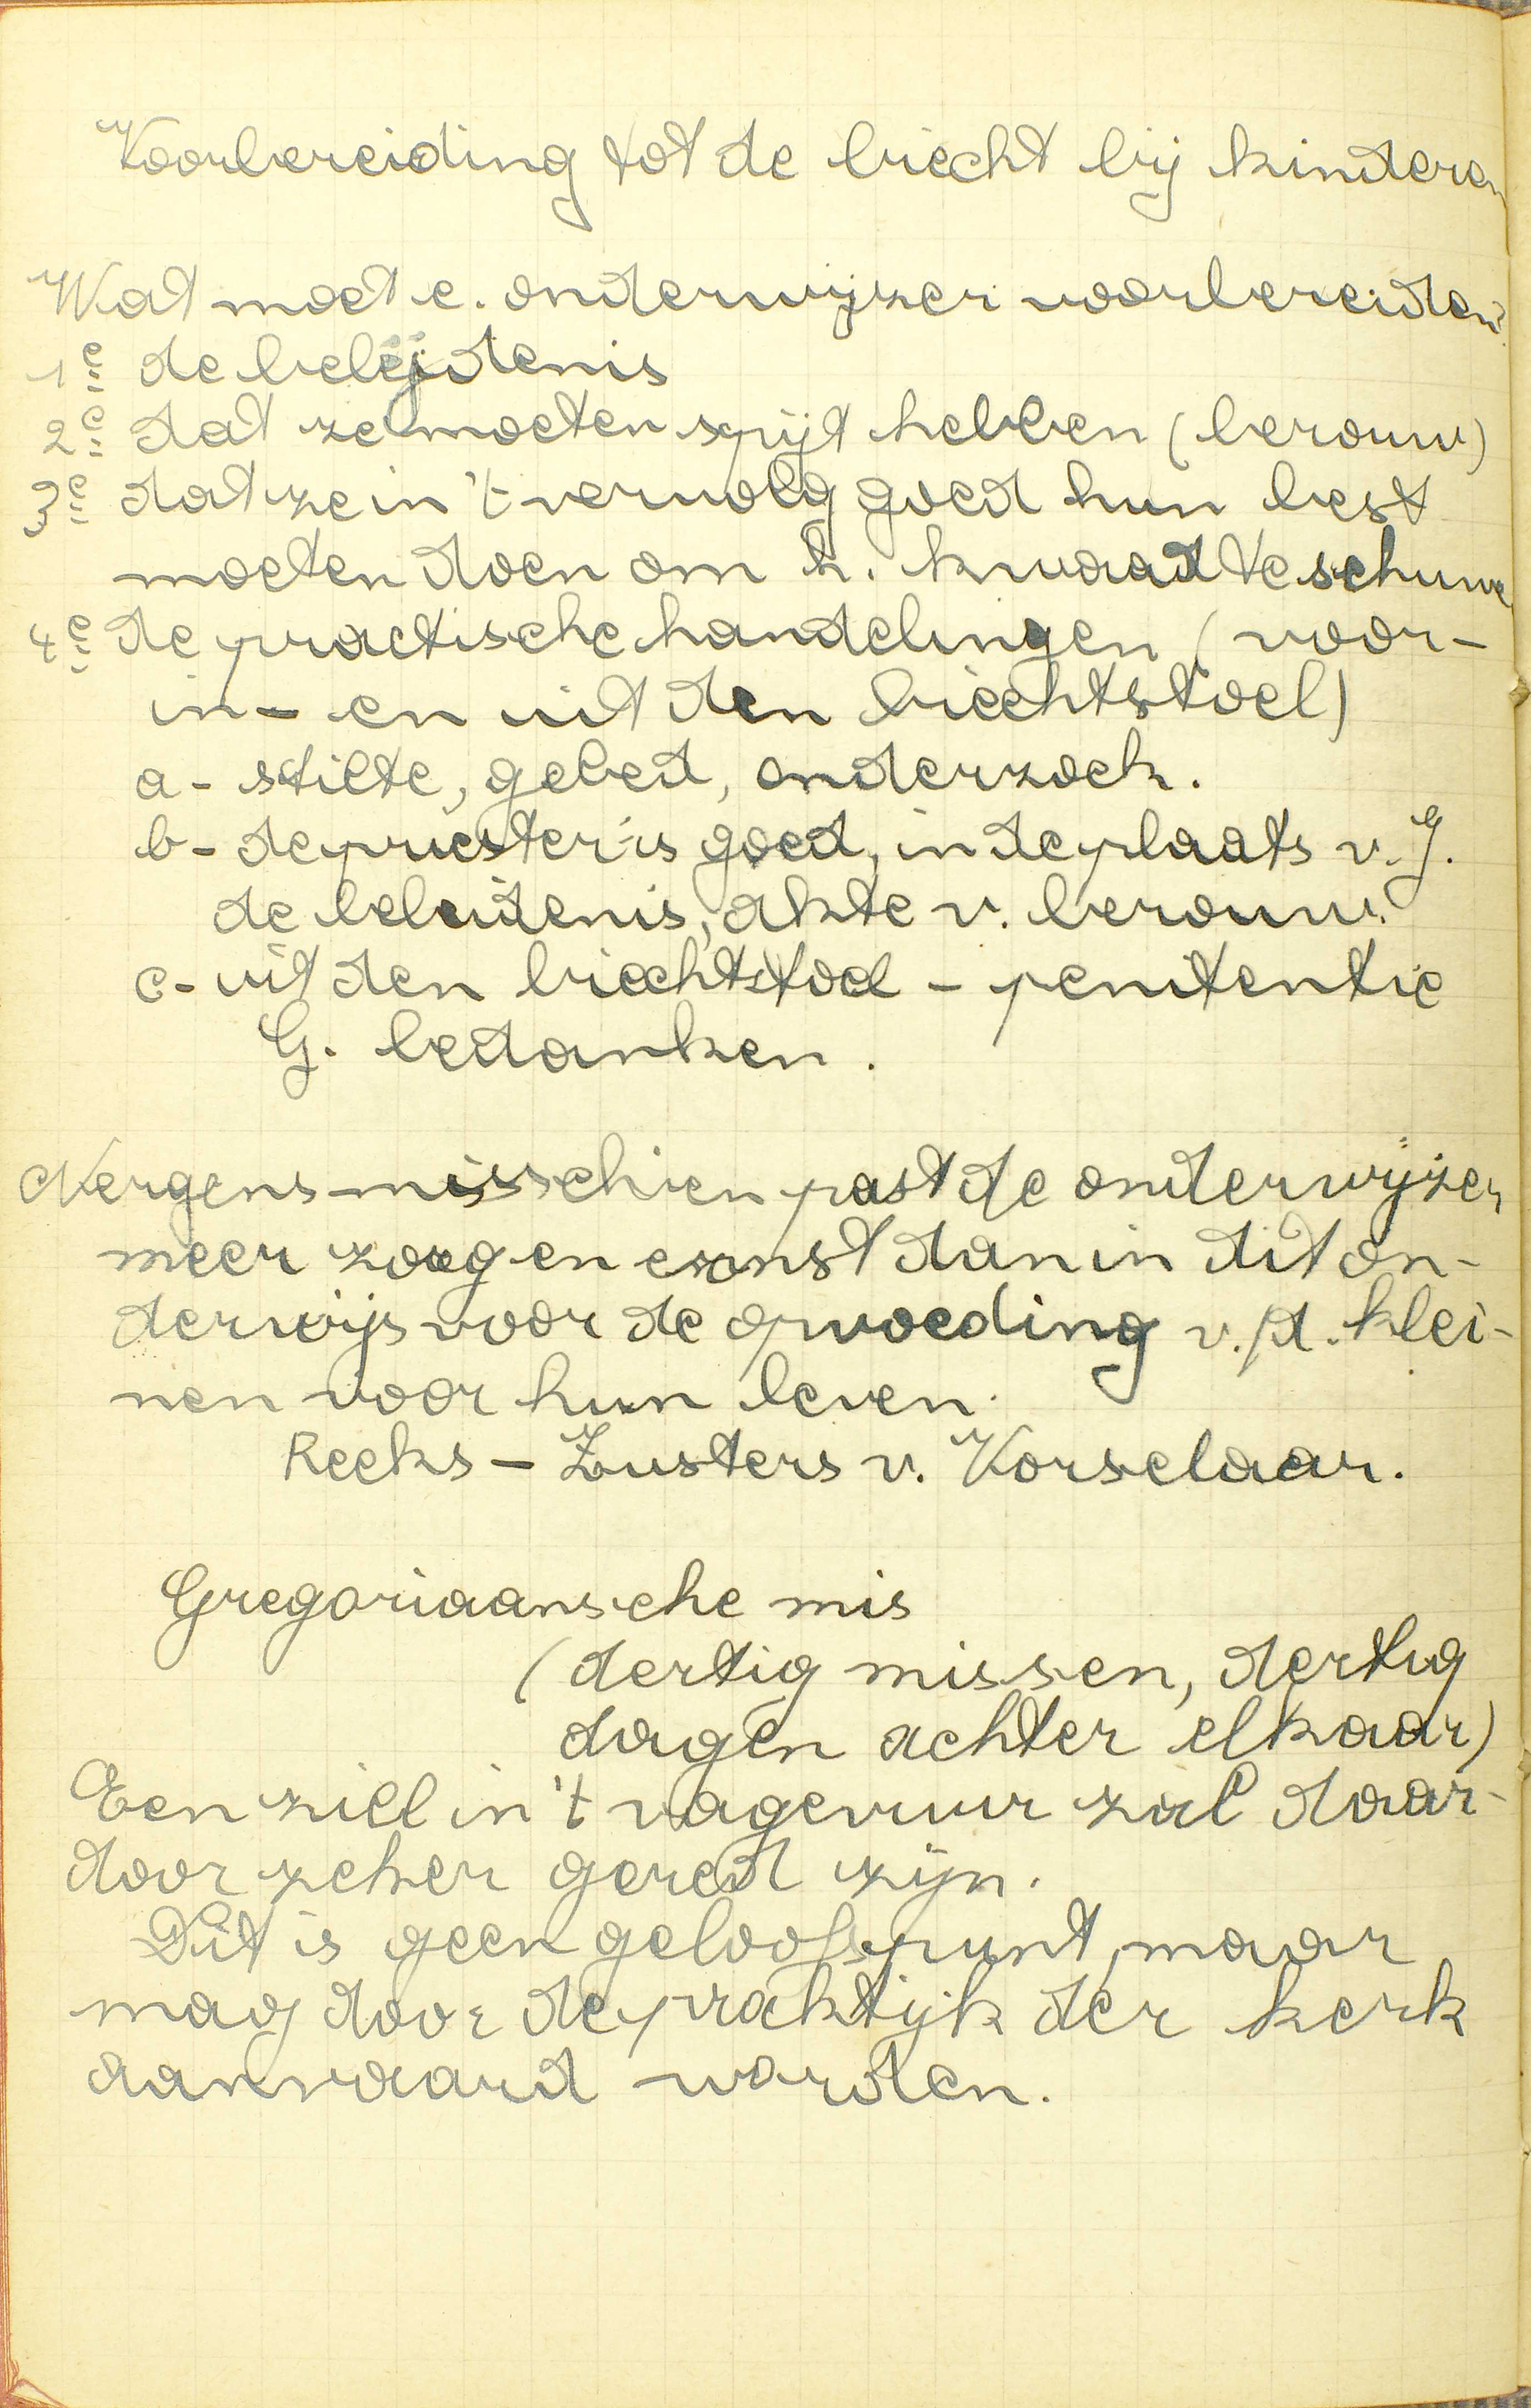 Voorbereiding tot de biecht bij kinderen
Wat moet e. onderwijzer voorbereiden?
1e de belijdenis
2e dat ze moeten spijt hebben (berouw)
3e dat ze in 't vervolg goed hun best
moeten doen om h. kwaad te schuwe
4e de practische handelingen (voor-
in- en uit den biechtstoel)
a- stilte, gebed, onderzoek.
b- de priester is goed, in de plaats v. J.
de beleidenis, akte v. berouw.
c- uit den biechtstoel - penitentie
G. bedanken.
Nergens misschien past de onderwijzer
meer zorg en ernst dan in dit on-
derwijs voor de opvoeding v./d. klei-
nen voor hun leven.
Reeks - Zusters v. Vorselaar.
Gregoriaansche mis
(dertig missen, dertig
dagen achter elkaar)
Een ziel in 't vagevuur zal daar-
door zeker gered zijn.
Dit is geen geloofspunt, maar
mag door de praktijk der kerk
aanvaard worden.